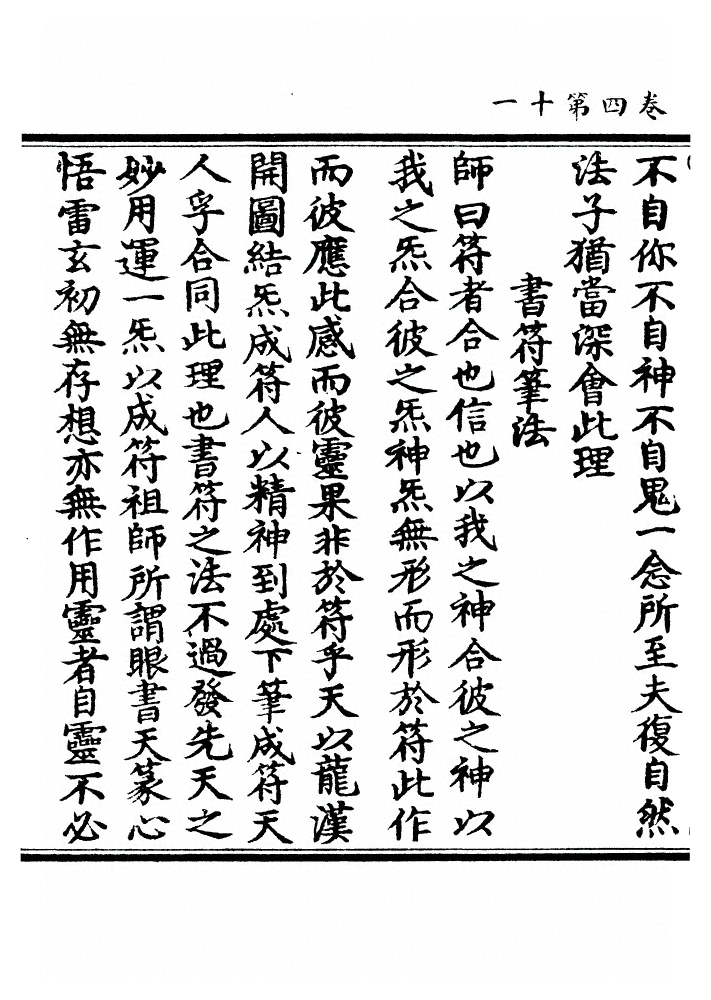 卷四第十一
不自你不自神不自鬼一念所至夫復自然
法子猶當深會此理
書符筆法
師曰符者合也信也以我之神合彼之神以
我之炁合彼之炁神炁無形而形於符此作
而彼應此感而彼靈果非於符乎天以龍漢
開圖結炁成符人以精神到處下筆成符天
人孚合同此理也書符之法不過發先天之
妙用運一炁以成符祖師所謂眼書天篆心
悟雷玄初無存想亦無作用靈者自靈不必